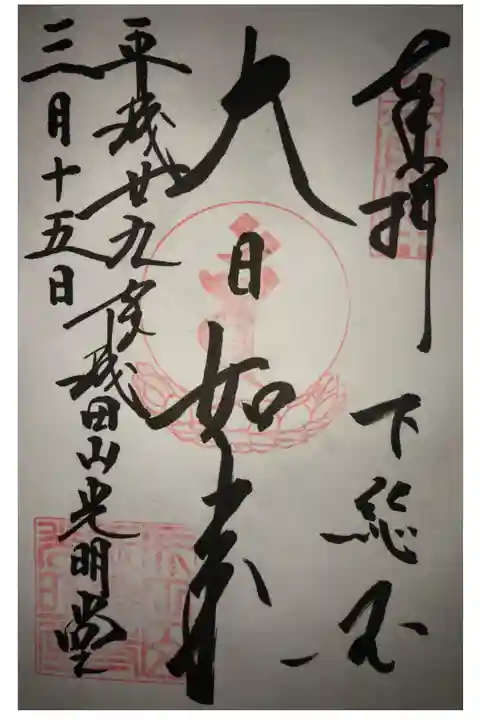 奉拝 下総国
大日如来
平成廿九年成田山光明堂
三月十五日